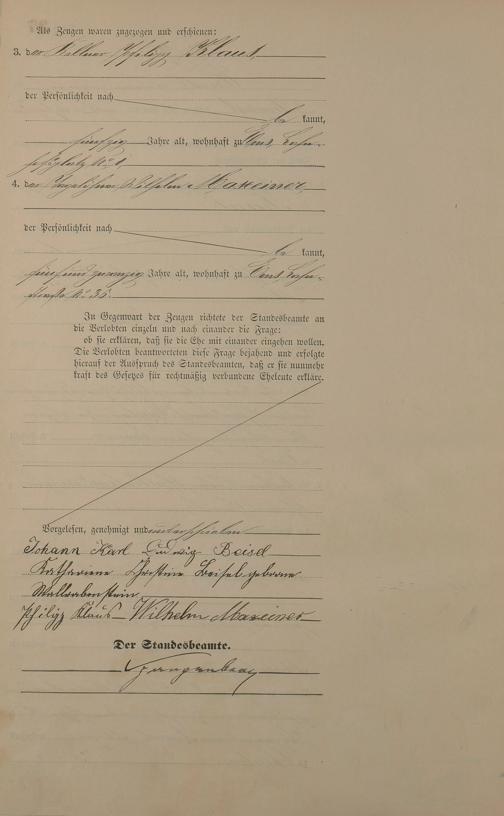 Als Zeugen waren zugezogen und erschienen:
3. der Kellner Philipp Klaus
der Persönlichkeit nach
be kannt,
fünfzig Jahre alt, wohnhaft zu Ems, Bahn-
hofsplatz No 1
4. der Wilhelm Maxeiner
der Persönlichkeit nach
be kannt,
fünfundzwanzig Jahre alt, wohnhaft zu Ems,
straße No 35.
In Gegenwart der Zeugen richtete der Standesbeamte an
die Verlobten einzeln und nach einander die Frage:
ob sie erklären, daß sie die Ehe mit einander eingehen wollen.
Die Verlobten beantworteten diese Frage bejahend und erfolgte
hierauf der Ausspruch des Standesbeamten, daß er sie nunmehr
kraft des Gesetzes für rechtmäßig verbundene Eheleute erkläre.
Vorgelesen, genehmigt und unterschrieben
Johann Karl Ludwig Beisel
Katharine Christine Beisel geborene
Wallrabenstein
Philipp Klaus Wilhelm Maxeiner
Der Standesbeamte.